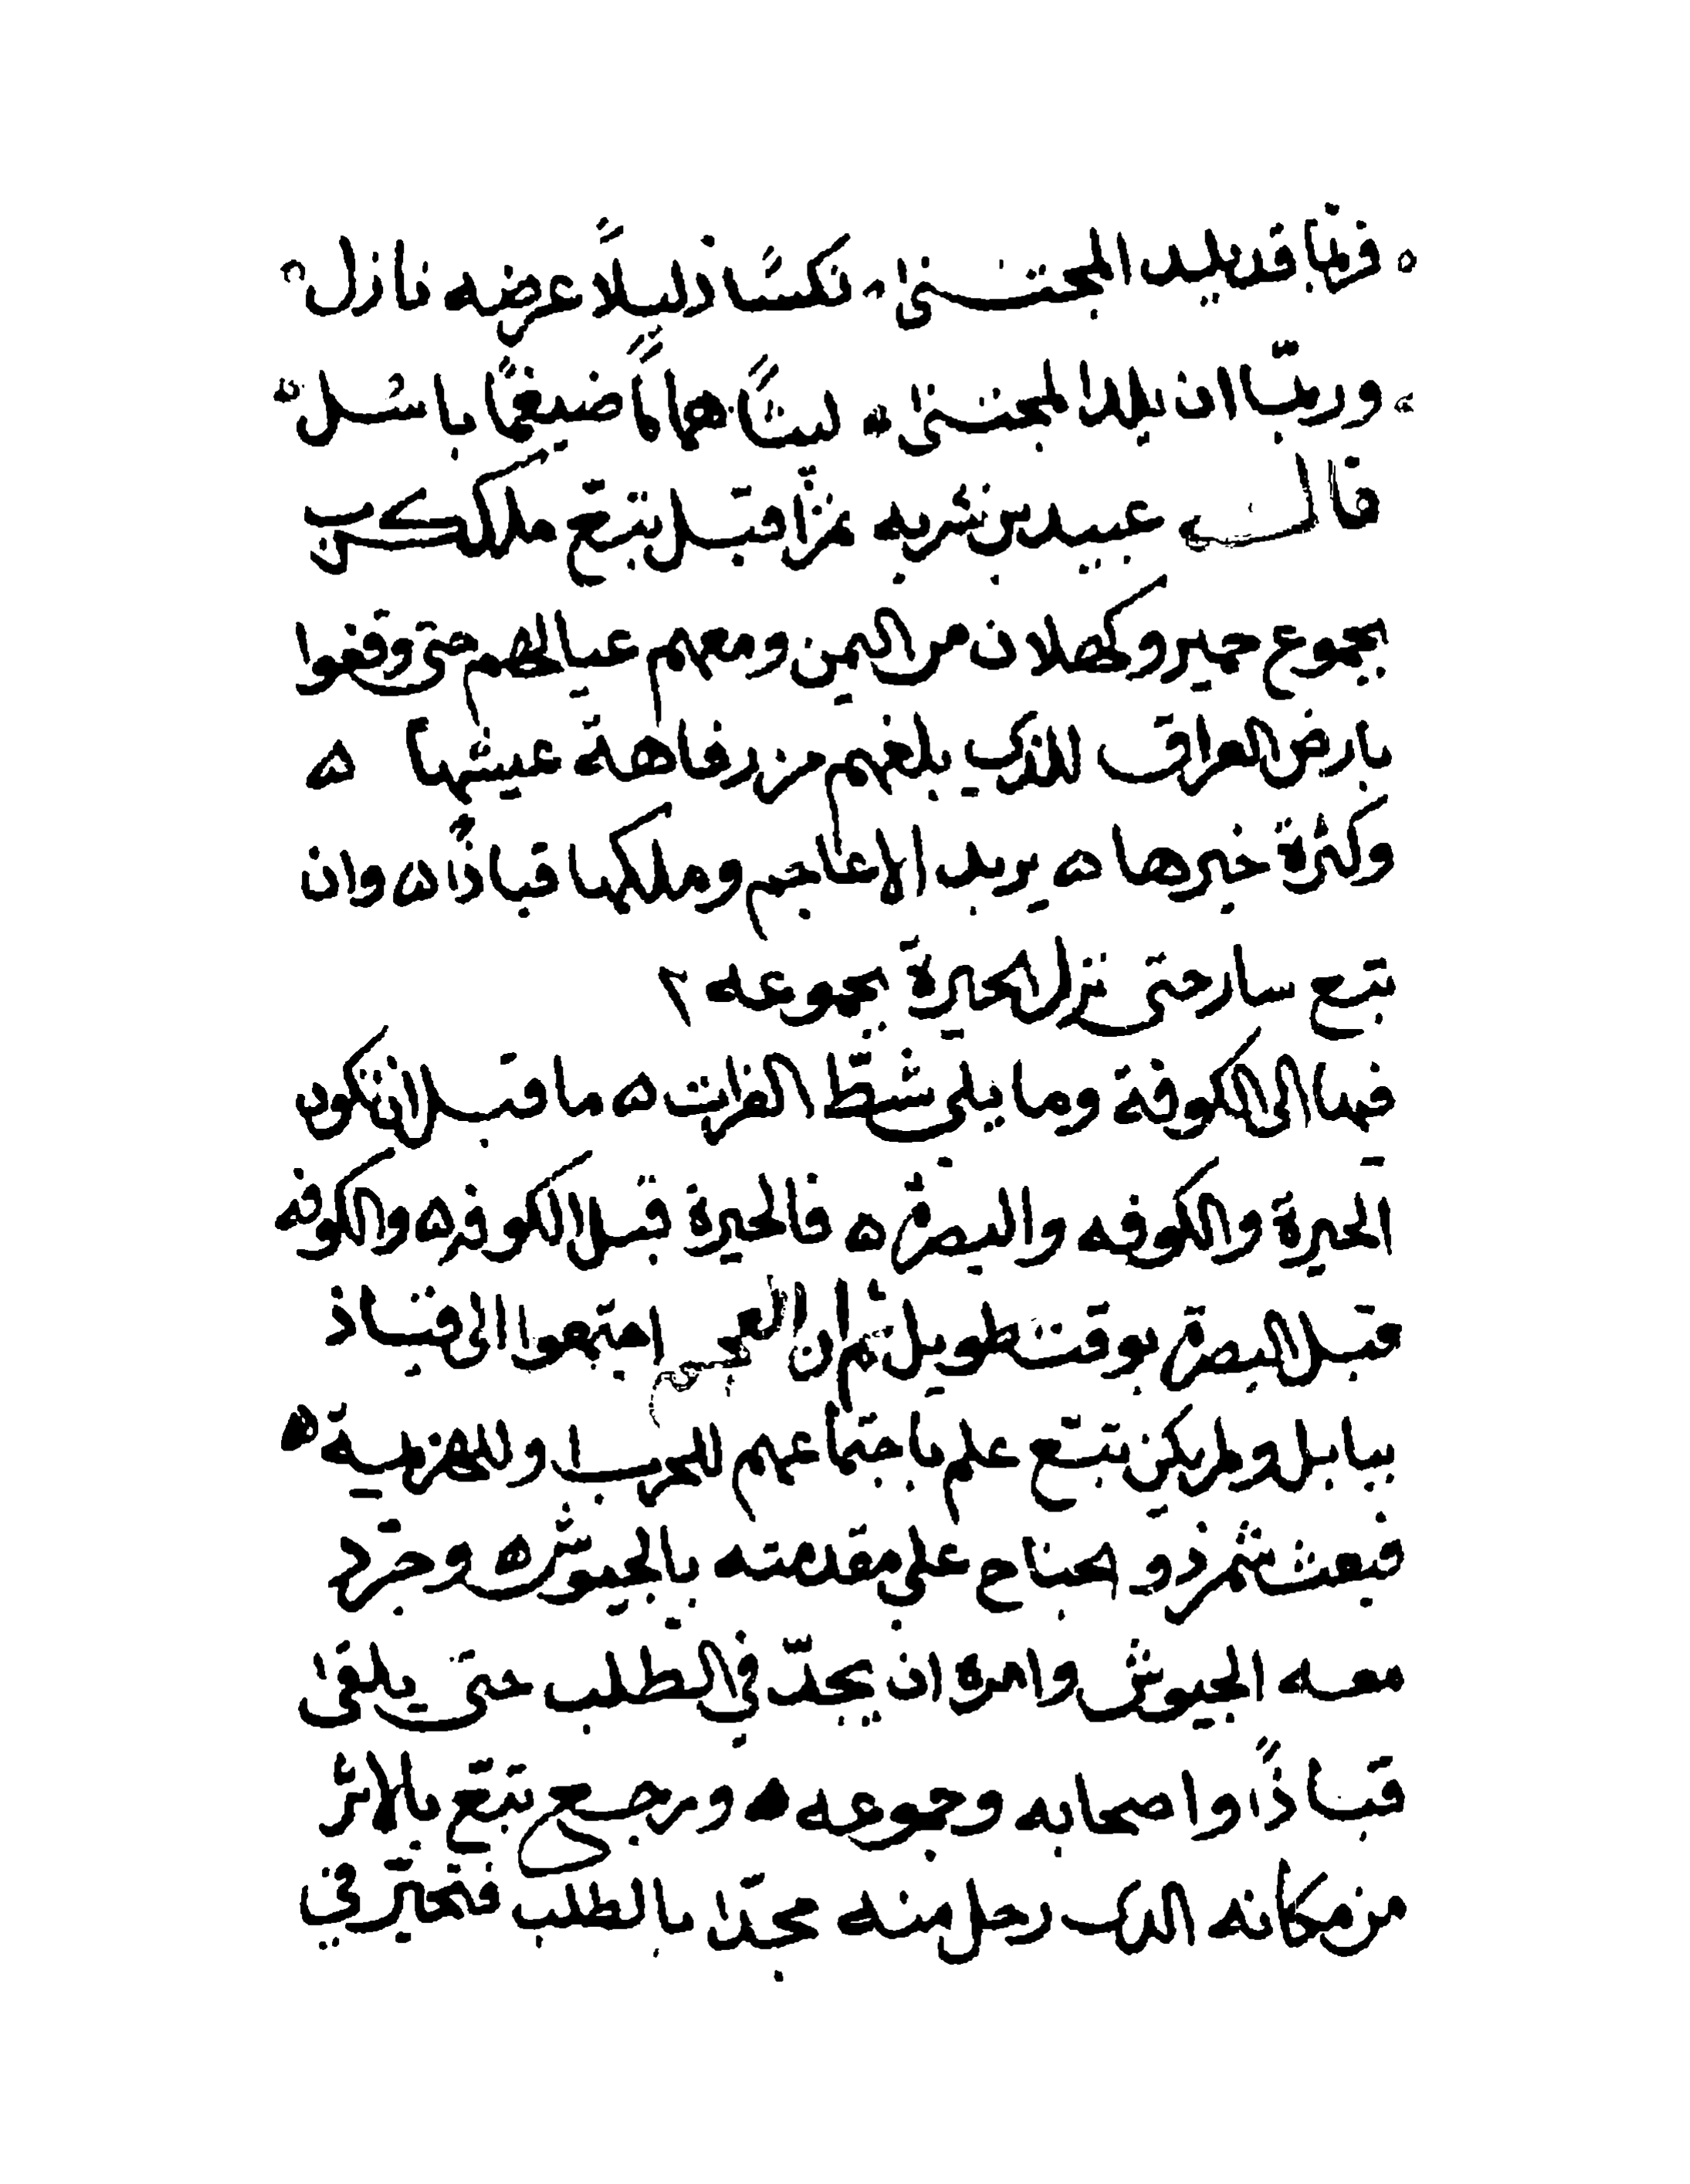 فربّما قد يلد المجتنىٰ نكسًا ذليلًا عرضه نازل
وربتّا ان يلد المجتنىٰ ليثًا همامًا ضيغمًا باسل
قال عبيد بن شريه ثمّ اقبل تبّع ملككرب
بجموع حمير وكهلان من اليمن ومعهم عيالهم حتى وقفوا
بارض العراق للذي بلغهم من رفاهة عيشها ه
وكثرة خيرها ه يريد الاعاجم وملكها قباذًا ه وان
تبع سار حتى نزل الحيرة بجموعه ٢
فيما الى الكوفة وما يلي شطّ الفرات ه ما قبل ان تكون
الحيرة والكوفه والبصرة ه فالحيرة قبل الكوفه ه والكوفه
قبل البصرة بوقت طويل ثم ان العجم اجتمعوا الى قباذ
ببابل ولم يكن تبّع علم باجتماعهم للحرب ا وللهزيمة ه
فبعث شمر ذو الجناح على مقدمته بالجيوش ه وجرّد
معه الجيوش وامره ان يجدّ في الطلب حتى يلقى
قباذًا واصحابه وجموعه ه ورجع تبّع بالاثر
من مكانه الذي رحل منه مجدّا بالطلب فتحيّر في